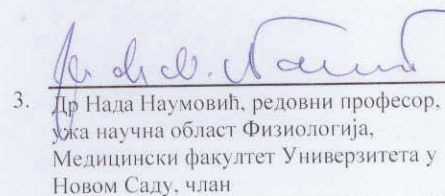 3. Др Нада Наумовић, редовни професор,
ужа научна област Физиологија,
Медицински факултет Универзитета у
Новом Саду, члан